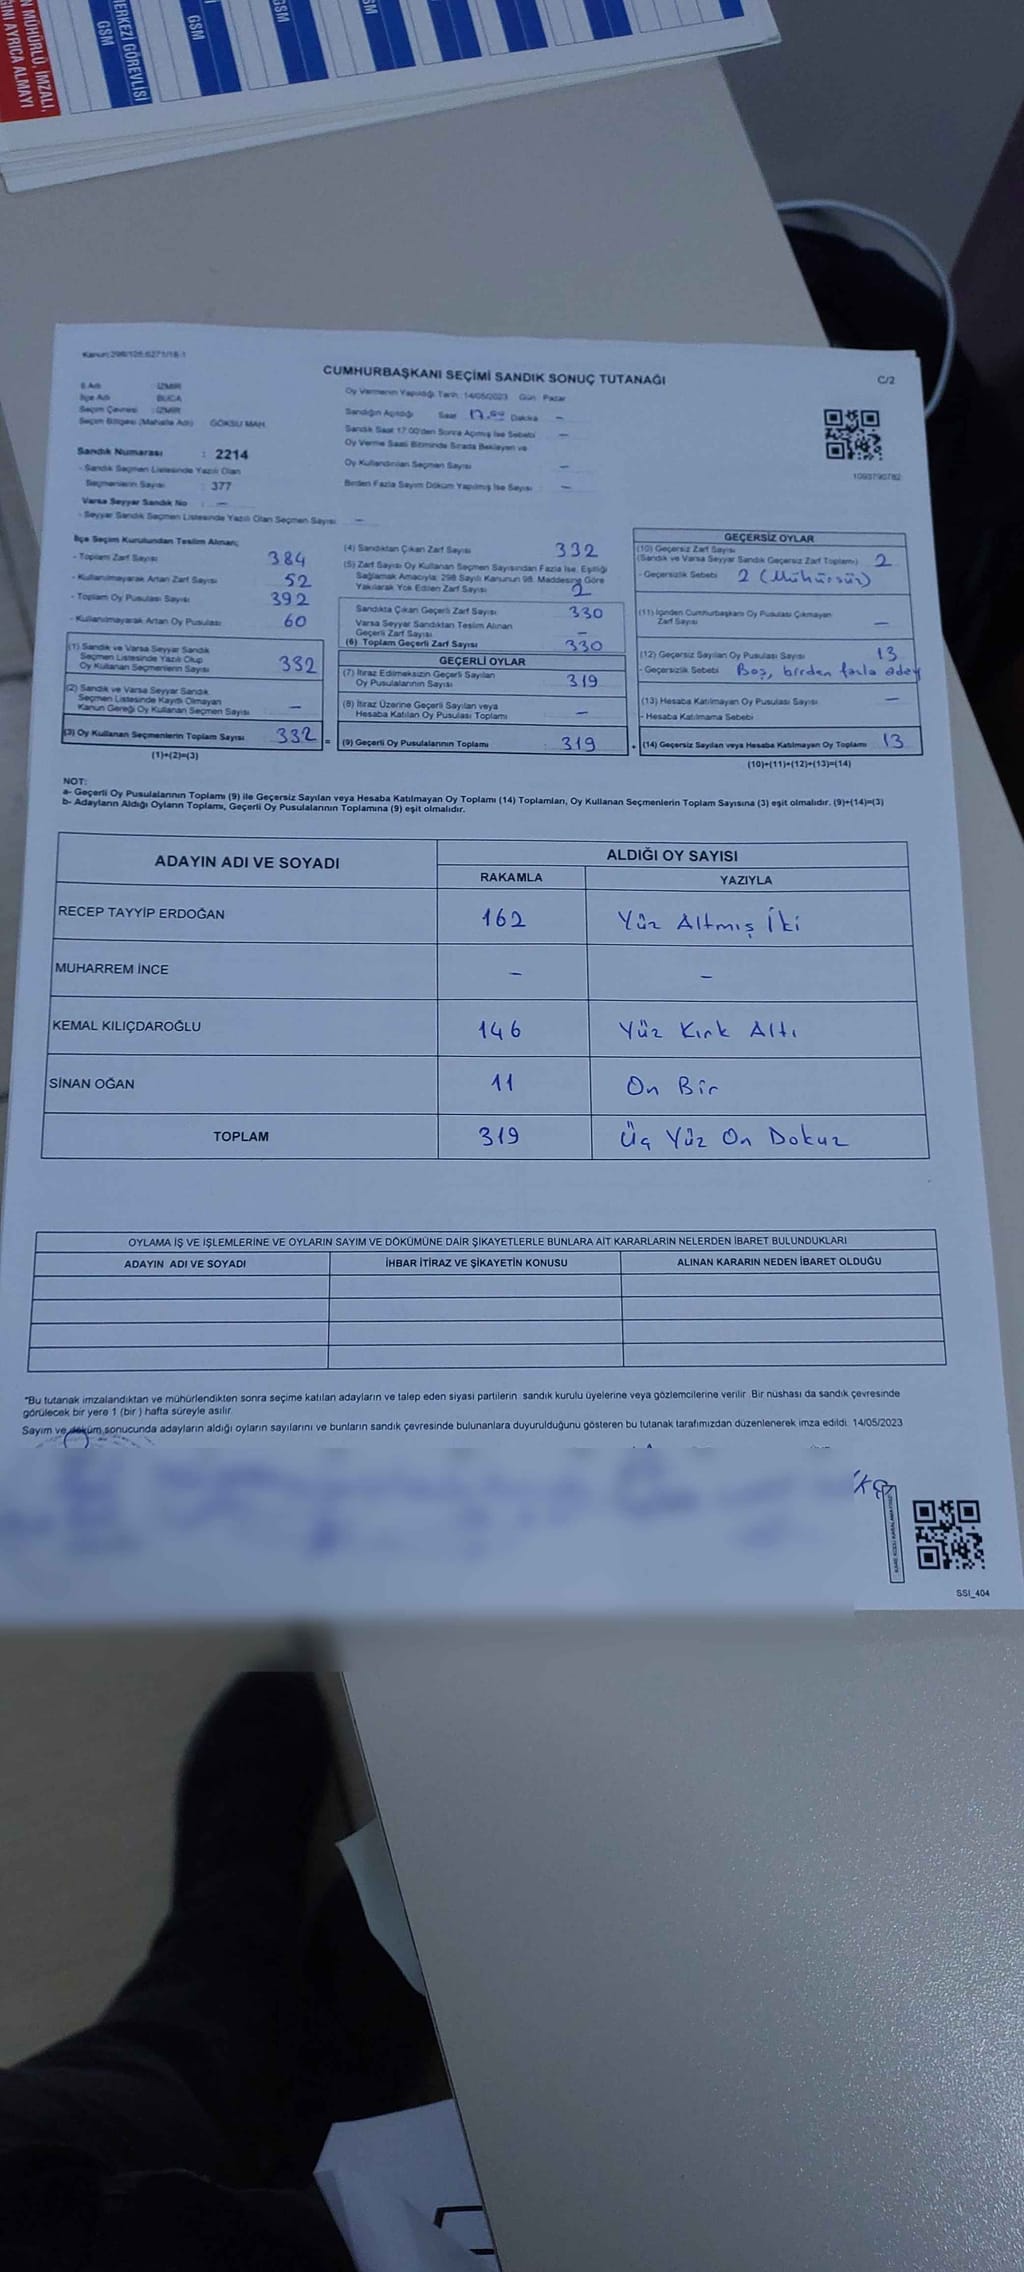 N MÜHÜRLÜ, İMZALI,
ĞINI AYRICA ALMAYI
MERKEZİ GÖREVLİSİ
GSM
GSM
GSM
SM
CUMHURBAŞKANI SEÇİMİ SANDIK SONUÇ TUTANAĞI
C/2
İl Adı : İZMİR
İlçe Adı : BUCA
Seçim Çevresi : İZMİR
Seçim Bölgesi (Mahalle Adı) GÖKSU MAH.
Sandık Numarası : 2214
- Sandık Seçmen Listesinde Yazılı Olan
Seçmenlerin Sayısı : 377
Varsa Seyyar Sandık No : —
- Seyyar Sandık Seçmen Listesinde Yazılı Olan Seçmen Sayısı —
Oy Vermenin Yapıldığı Tarih: 14/05/2023 Gün: Pazar
Sandığın Açıldığı Saat Dakika —
Sandık Saat 17:00'den Sonra Açılmış İse Sebebi —
Oy Verme Saati Bitiminde Sırada Bekleyen ve
Oy Kullandırılan Seçmen Sayısı —
Birden Fazla Sayım Döküm Yapılmış İse Sayısı : —
1093790782
İlçe Seçim Kurulundan Teslim Alınan;
- Toplam Zarf Sayısı 384
- Kullanılmayarak Artan Zarf Sayısı 52
- Toplam Oy Pusulası Sayısı 392
- Kullanılmayarak Artan Oy Pusulası 60
(1) Sandık ve Varsa Seyyar Sandık
Seçmen Listesinde Yazılı Olup
Oy Kullanan Seçmenlerin Sayısı 332
(2) Sandık ve Varsa Seyyar Sandık
Seçmen Listesinde Kayıtlı Olmayan
Kanun Gereği Oy Kullanan Seçmen Sayısı —
(3) Oy Kullanan Seçmenlerin Toplam Sayısı 332 =
(1)+(2)=(3)
(4) Sandıktan Çıkan Zarf Sayısı 332
(5) Zarf Sayısı Oy Kullanan Seçmen Sayısından Fazla İse, Eşitliği
Sağlamak Amacıyla; 298 Sayılı Kanunun 98. Maddesine Göre
Yakılarak Yok Edilen Zarf Sayısı 2
Sandıkta Çıkan Geçerli Zarf Sayısı 330
Varsa Seyyar Sandıktan Teslim Alınan
Geçerli Zarf Sayısı —
(6) Toplam Geçerli Zarf Sayısı 330
GEÇERLİ OYLAR
(7) İtiraz Edilmeksizin Geçerli Sayılan
Oy Pusulalarının Sayısı 319
(8) İtiraz Üzerine Geçerli Sayılan veya
Hesaba Katılan Oy Pusulası Toplamı —
(9) Geçerli Oy Pusulalarının Toplamı : 319 +
GEÇERSİZ OYLAR
(10) Geçersiz Zarf Sayısı
(Sandık ve Varsa Seyyar Sandık Geçersiz Zarf Toplamı) 2
- Geçersizlik Sebebi 2 (Mühürsüz)
(11) İçinden Cumhurbaşkanı Oy Pusulası Çıkmayan
Zarf Sayısı —
(12) Geçersiz Sayılan Oy Pusulası Sayısı 13
- Geçersizlik Sebebi Boş, birden fazla aday
(13) Hesaba Katılmayan Oy Pusulası Sayısı —
- Hesaba Katılmama Sebebi
(14) Geçersiz Sayılan veya Hesaba Katılmayan Oy Toplamı 13
(10)+(11)+(12)+(13)=(14)
NOT:
a- Geçerli Oy Pusulalarının Toplamı (9) ile Geçersiz Sayılan veya Hesaba Katılmayan Oy Toplamı (14) Toplamları, Oy Kullanan Seçmenlerin Toplam Sayısına (3) eşit olmalıdır. (9)+(14)=(3)
b- Adayların Aldığı Oyların Toplamı, Geçerli Oy Pusulalarının Toplamına (9) eşit olmalıdır.
ADAYIN ADI VE SOYADI
ALDIĞI OY SAYISI
RAKAMLA YAZIYLA
RECEP TAYYİP ERDOĞAN 162 Yüz Altmış İki
MUHARREM İNCE — —
KEMAL KILIÇDAROĞLU 146 Yüz Kırk Altı
SİNAN OĞAN 11 On Bir
TOPLAM 319 Üç Yüz On Dokuz
OYLAMA İŞ VE İŞLEMLERİNE VE OYLARIN SAYIM VE DÖKÜMÜNE DAİR ŞİKAYETLERLE BUNLARA AİT KARARLARIN NELERDEN İBARET BULUNDUKLARI
ADAYIN ADI VE SOYADI İHBAR İTİRAZ VE ŞİKAYETİN KONUSU ALINAN KARARIN NEDEN İBARET OLDUĞU
*Bu tutanak imzalandıktan ve mühürlendikten sonra seçime katılan adayların ve talep eden siyasi partilerin sandık kurulu üyelerine veya gözlemcilerine verilir. Bir nüshası da sandık çevresinde
görülecek bir yere 1 (bir) hafta süreyle asılır.
Sayım ve döküm sonucunda adayların aldığı oyların sayılarını ve bunların sandık çevresinde bulunanlara duyurulduğunu gösteren bu tutanak tarafımızdan düzenlenerek imza edildi. 14/05/2023
SSI_404